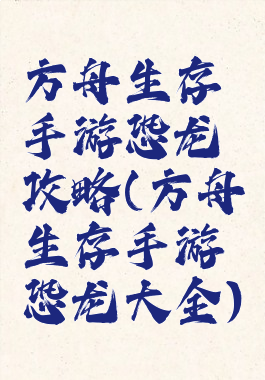 方舟生存
手游恐龙
攻略(方舟
生存手游
恐龙大全)